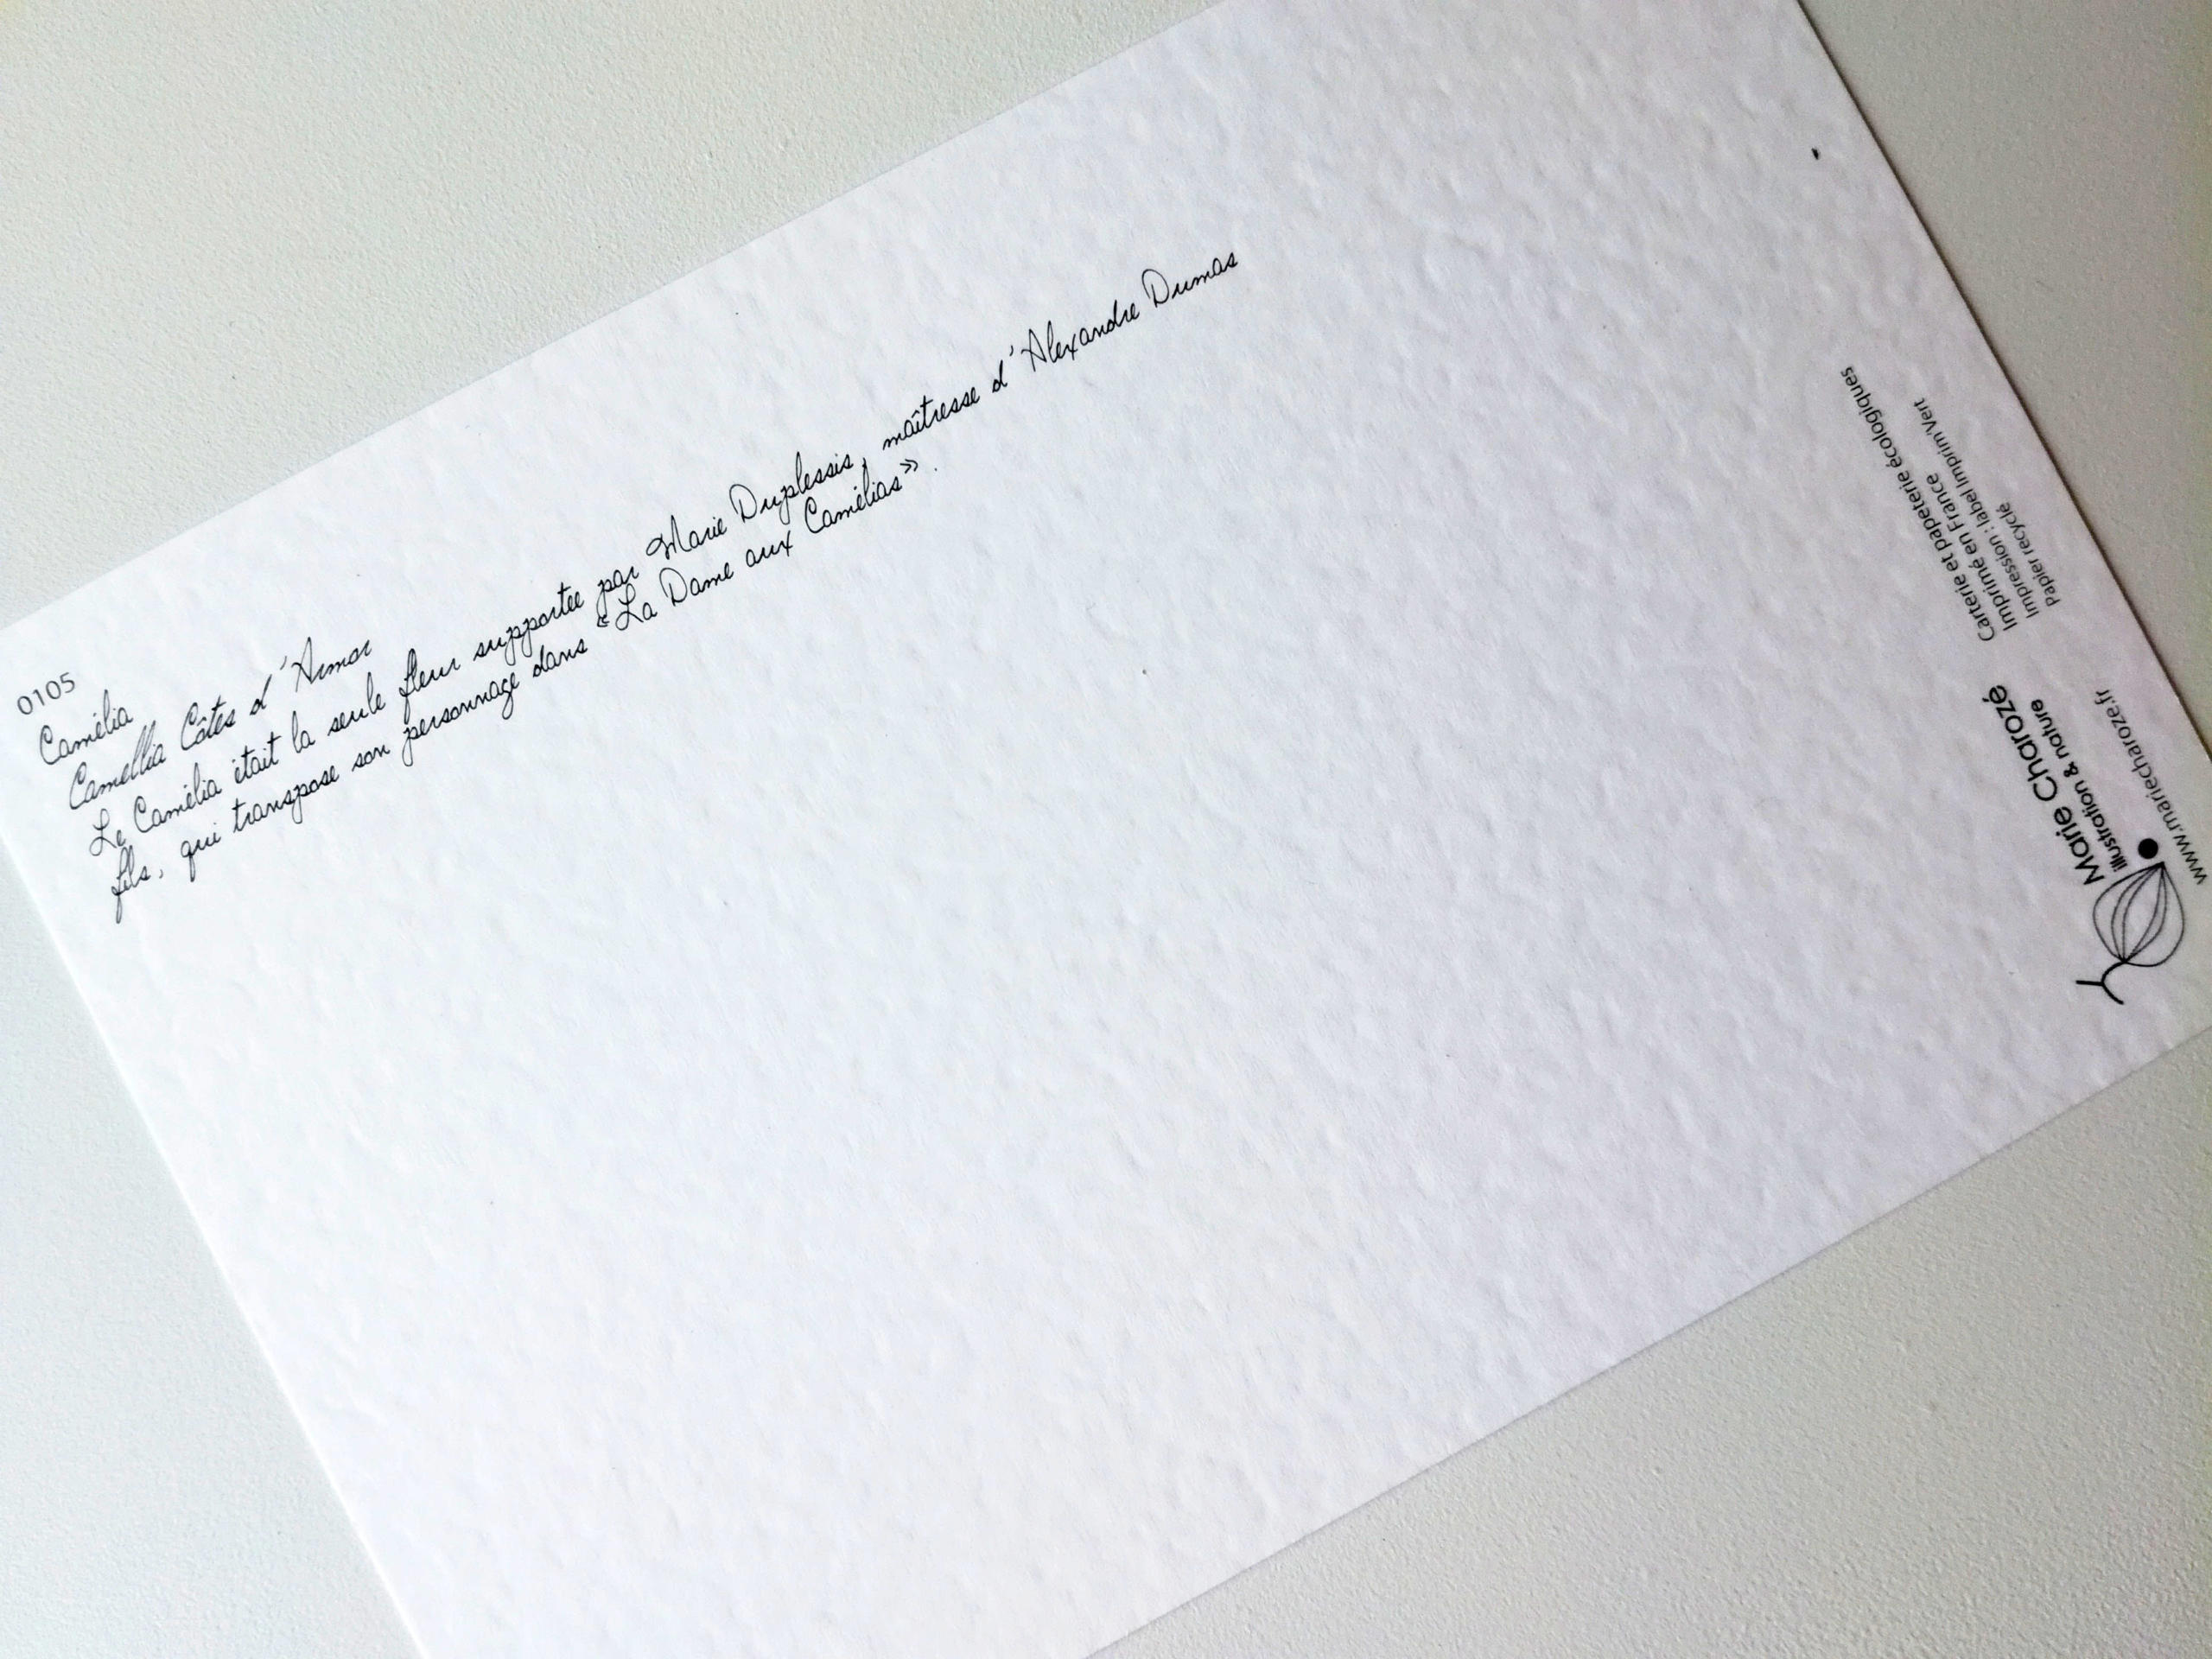 0105
Camélia
Camellia Côtes d'Armor
Le Camélia était la seule fleur supportée par Marie Duplessis, maîtresse d'Alexandre Dumas
fils, qui transpose son personnage dans «La Dame aux Camélias».
Carterie et papeterie écologiques
Imprimé en France
Impression : label Imprim'Vert
Papier recyclé
Marie Charozé
illustration & nature
www.mariecharoze.fr